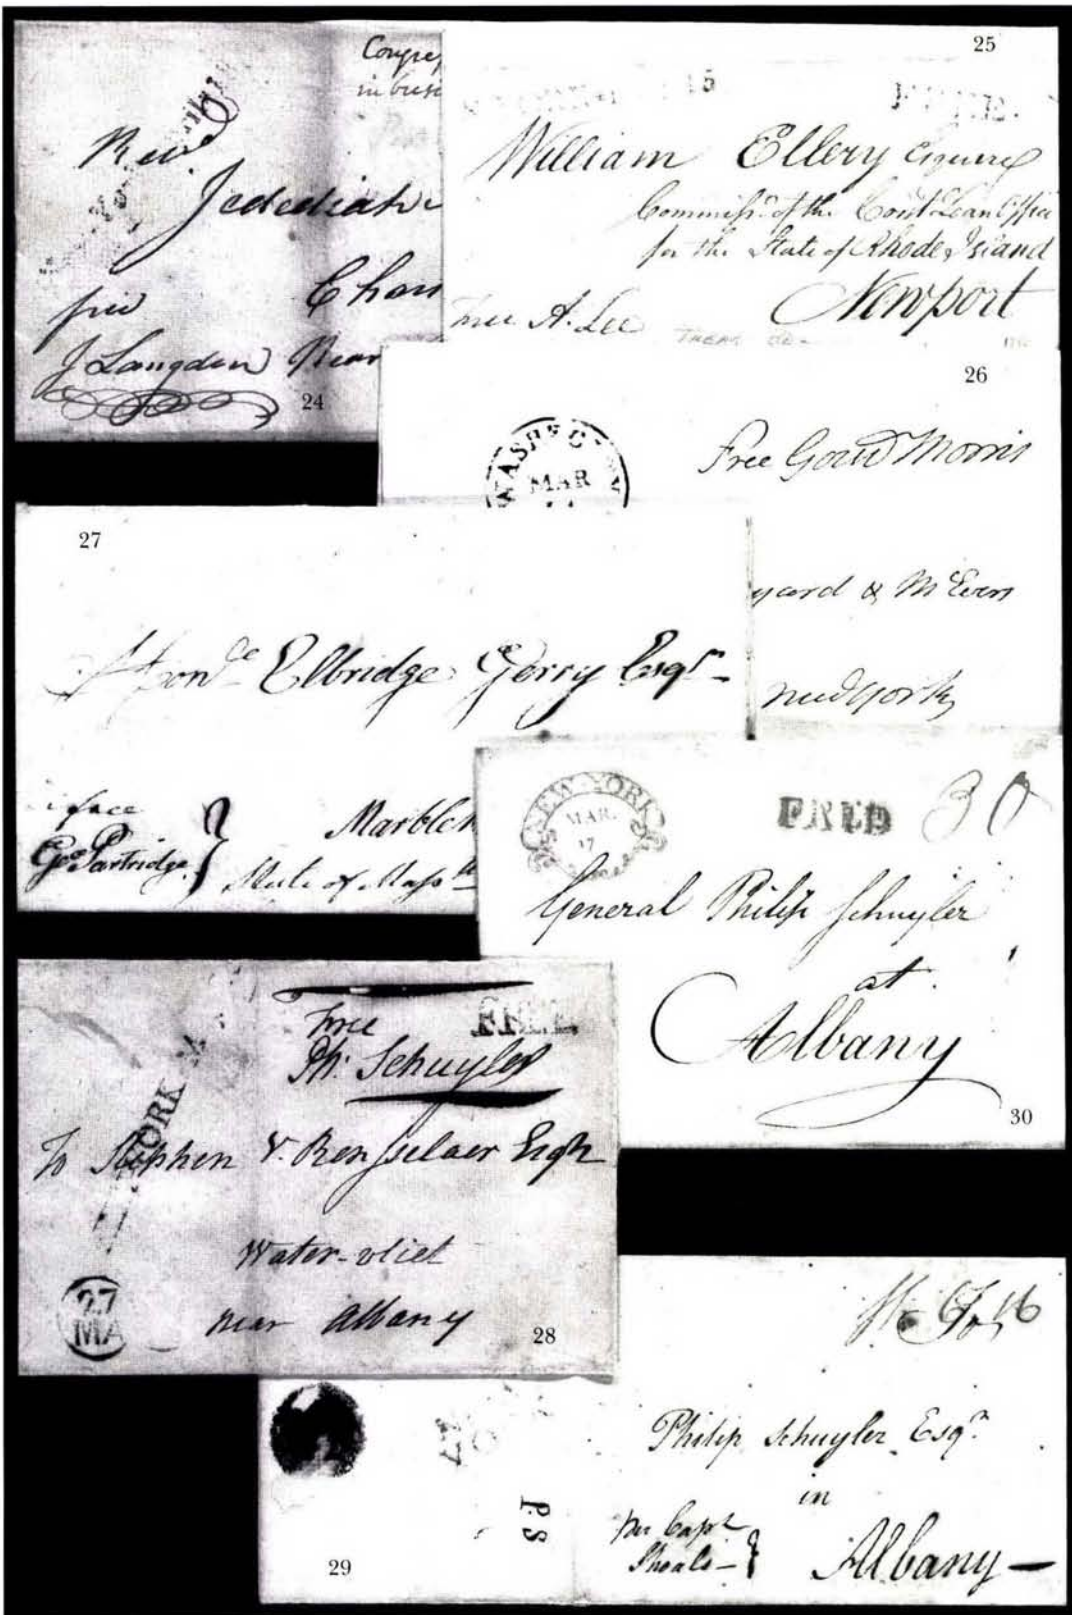 Congre
in busi
Revd
Jedediah
free
Char
J Langdon Near
24
25
15
FREE.
William Ellery Esquire
Commissr. of the Cont Loan Office
for the State of Rhode Island
Newport
Free A. Lee
TREAS
26
WASH CITY
MAR
Free Gouv Morris
yard & McEvers
New York
27
Honble Elbridge Gerry Esqr
Marbleh
State of Massts
Geo Partridge
NEW-YORK
MAR.
17
PAID
30
General Philip Schuyler
at
Albany
30
Free
FREE
Ph: Schuyler
YORK
To Stephen V. Rensselaer Esqr
Water-vliet
near Albany
27
MA
28
Philip Schuyler Esqr.
in
Albany
per Capt
P.S
29